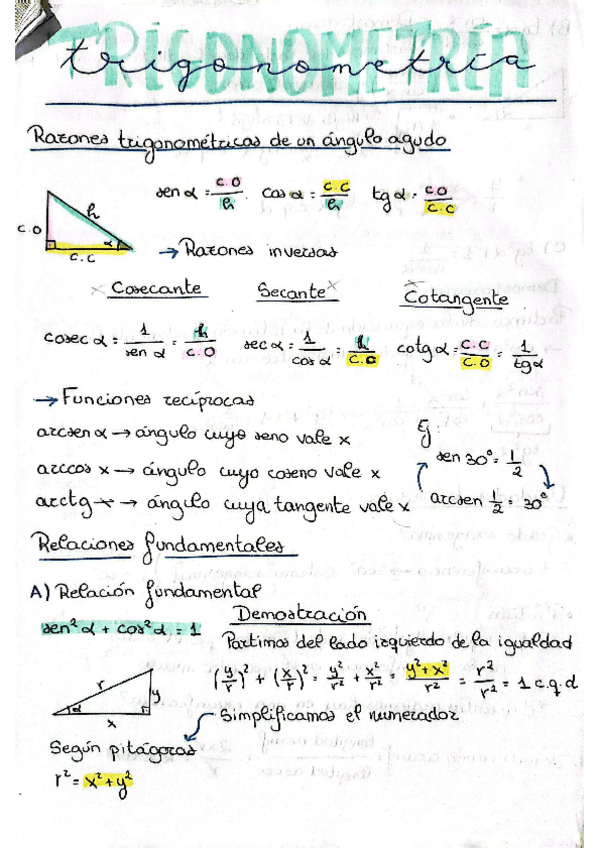 TRIGONOMETRÍA
trigonometría
Razones trigonométricas de un ángulo agudo
sen α = C.O/h cos α = C.C/h tg α = C.O/C.C
h
C.O
α
C.C
→ Razones inversas
Cosecante Secante Cotangente
cosec α = 1/sen α = h/C.O sec α = 1/cos α = h/C.C cotg α = C.C/C.O = 1/tg α
→ Funciones recíprocas
arcsen α → ángulo cuyo seno vale x
arccos x → ángulo cuyo coseno vale x
arctg x → ángulo cuya tangente vale x
Ej:
sen 30º = 1/2
arcsen 1/2 = 30º
Relaciones fundamentales
A) Relación fundamental
sen² α + cos² α = 1
Demostración
Partimos del lado izquierdo de la igualdad
(y/r)² + (x/r)² = y²/r² + x²/r² = y²+x²/r² = r²/r² = 1 c.q.d
r
y
α
x
Simplificamos el numerador
Según pitágoras
r² = x² + y²